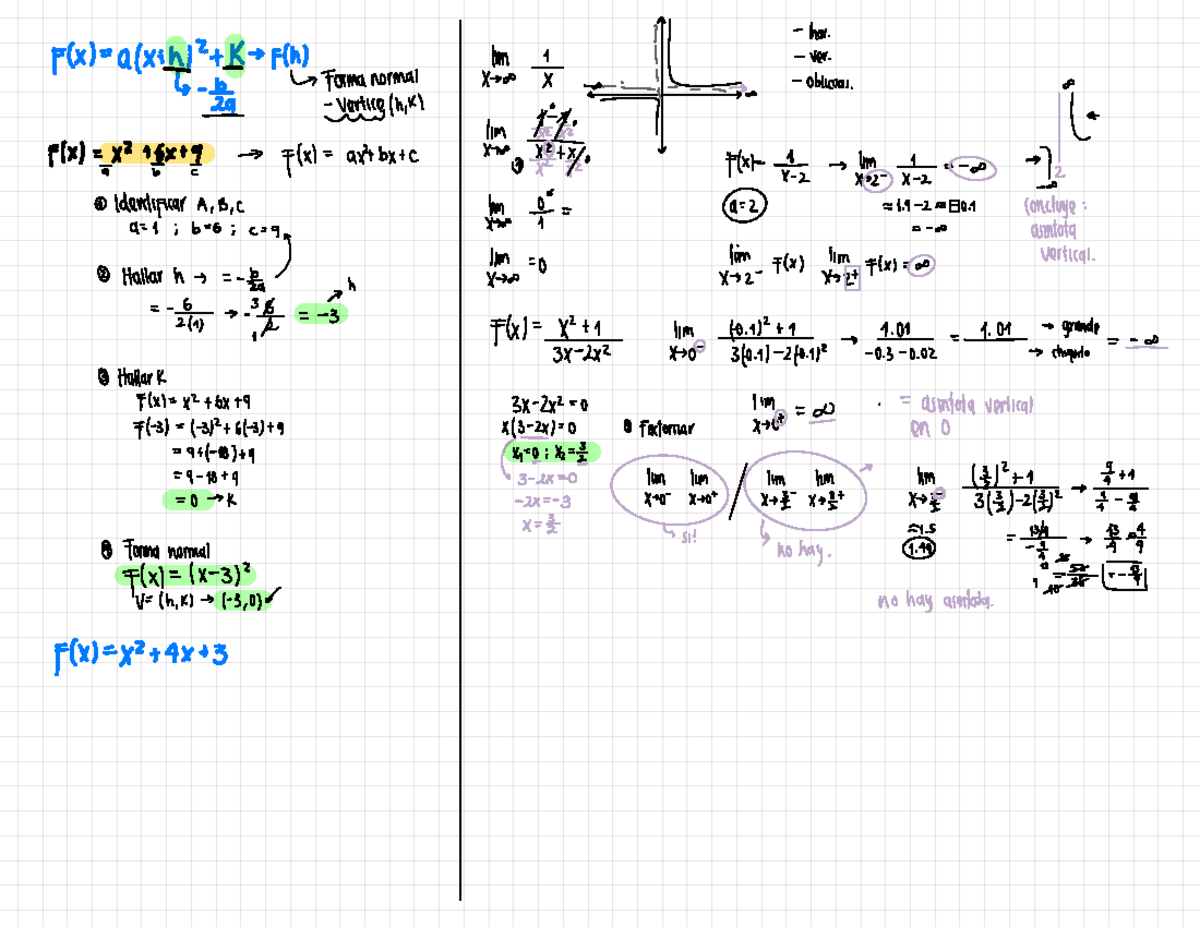 F(x) = a(x+h)² + K → F(h)
↳ Forma normal
- b/2a
- Vertice (h,K)
F(x) = x² + 6x + 9 → F(x) = ax² + bx + c
a b c
① Identificar A, B, C
a=1 ; b=6 ; c=9
② Hallar h → = -b/2a
h
= -6/2(1) → -6/2 = -3
③ Hallar K
F(x) = x² + 6x + 9
F(-3) = (-3)² + 6(-3) + 9
= 9 + (-18) + 9
= 9 - 18 + 9
= 0 → K
④ Forma normal
F(x) = (x-3)²
V = (h,K) → (-3,0)
F(x) = x² + 4x + 3
lim x→∞ 1/x
- hor.
- ver.
- oblicuas.
lim x→∞
lim x→∞ 0/1 =
lim x→∞ = 0
F(x) = 1/x-2 → lim x→2⁻ 1/x-2 = -∞
a=2
≈ 1.9 - 2 = -0.1
= -∞
∞
-∞
2
Concluye :
asintota
vertical.
lim x→2⁻ F(x) lim x→2⁺ F(x) = ∞
F(x) = x² + 1/3x - 2x²
lim x→0⁻ (0.1)² + 1/3(0.1) - 2(0.1)² → 1.01/-0.3 - 0.02 = 1.01 → grande → chiquito = -∞
3x - 2x² = 0
x(3 - 2x) = 0
x₁ = 0 ; x₂ = 3/2
3 - 2x = 0
-2x = -3
x = 3/2
① Factorizar
lim x→0⁺ = ∞
= asintota vertical
en 0
lim x→0⁻ lim x→0⁺ / lim x→3/2⁻ lim x→3/2⁺
↳ si!
↳ no hay.
lim x→3/2⁻ (3/2)² + 1/3(3/2) - 2(3/2)² → 9/4 + 1/9/4 - 9/4
≈ 1.5
1.49
no hay asintota.